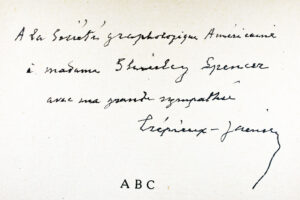 A la Société graphologique Américaine
à madame Stanley Spencer
avec ma grande sympathie
Crépieux-Jamin
ABC